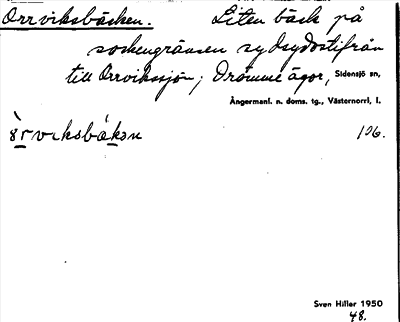 Orrviksbäcken. Liten bäck på
sockengränsen sydsydostifrån
till Orrvikssjön; Drömme ägor, Sidensjö sn,
Ångermanl. n. doms. tg., Västernorrl. l.
106.
Sven Hiller 1950
48.